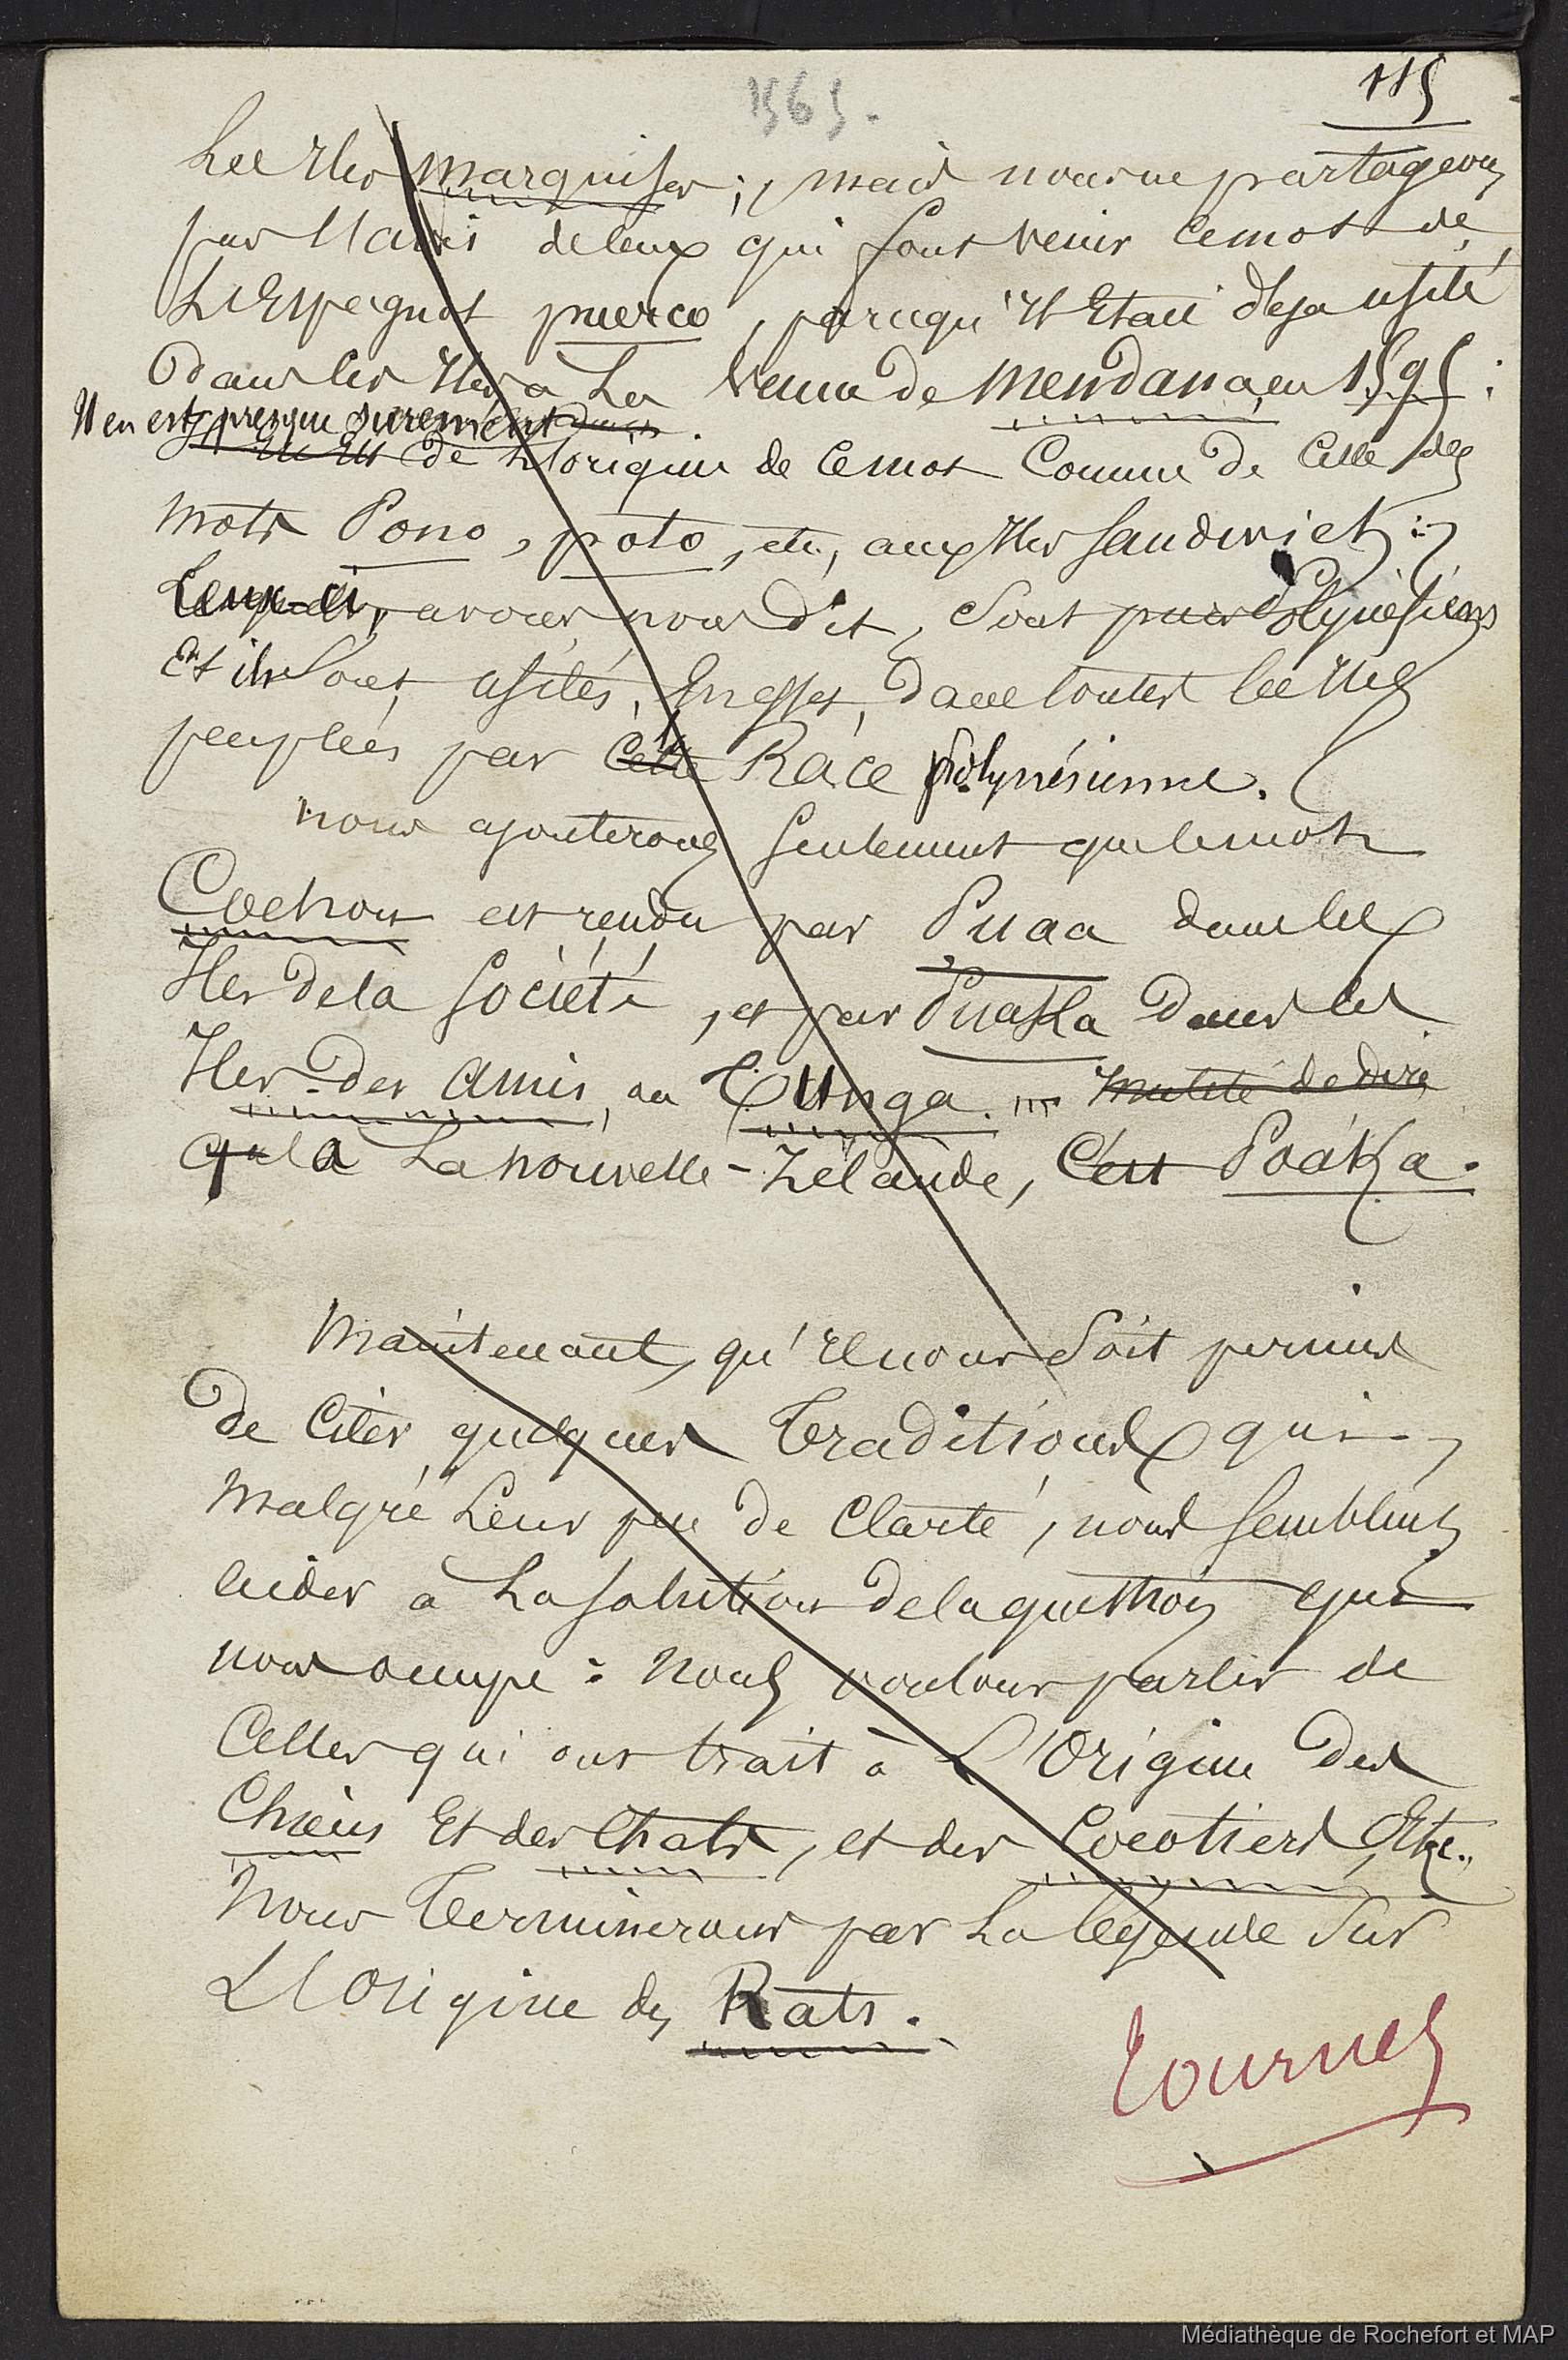 115
1565.
Les Iles Marquises ; mais nous ne partageons
pas l'avis de ceux qui font venir ce mot de
L'Espagnol puerco, parcequ'il Etait déja usité
dans les Iles a La venue de Mendana en 1595 :
Il en est presque surement
de L'origine de ce mot Comme de Celle des
mots Pono, poto, etc, aux Iles Sandwich :
Ceux-ci, avons nous dit, Sont purs Polynésiens
Et ils Sont usités, En effet, dans toutes les Iles
peuplées par cette Race polynésienne.
nous ajouterons Seulement que le mot
Cochon est rendu par Puaa dans les
Iles de la Société, et par Puaka dans les
Iles des Amis, ou Tunga. Inutile de dire
qu'à La nouvelle-Zélande, C'est Poaka.
Maintenant, qu'Il nous Soit permis
de Citer quelques Traditions qui
malgré Leur peu de Clarté, nous Semblent
aider à La Solution de la question qui
nous occupe : Nous voulons parler de
Celles qui ont trait à L'Origine des
Chiens Et des Chats, et des Cocotiers Etc.
Nous Terminerons par La légende Sur
L'Origine des Rats.
Tournez
Médiathèque de Rochefort et MAP